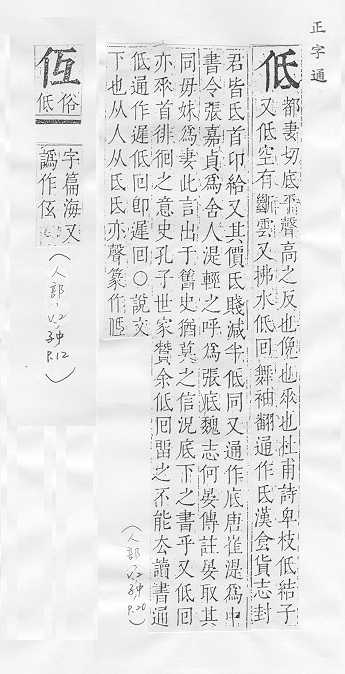 正字通
低
都妻切底平聲高之反也俛也垂也杜甫詩卑枝低結子
又低空有斷雲又拂水低回舞袖翻通作氐漢食貨志封
君皆氐首卬給又其價氐賤減半低同又通作底唐崔湜爲中
書令張嘉貞爲舍人湜輕之呼爲張底魏志何晏傳註晏取其
同毋妹爲妻此言出于舊史猶莫之信況底下之書乎又低回
亦垂首徘徊之意史孔子世家贊余低回畱之不能去讀書通
低通作遲低回卽遲回○說文
下也从人从氐氐亦聲篆作
(人部,V.2子中
P.20)
仾
俗
低
字篇海又
譌作
(人部,V.2,子中
P.12)